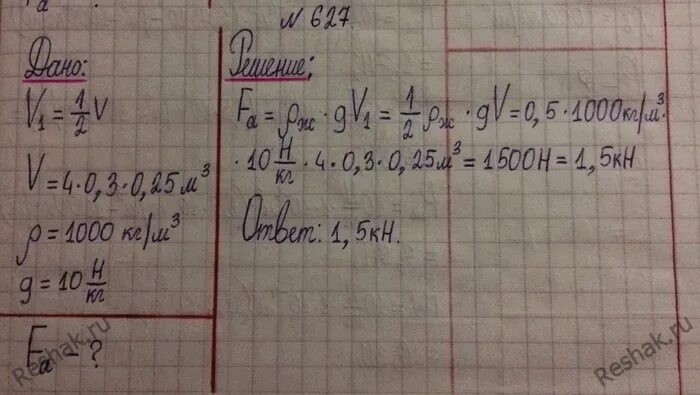 N 627.
Дано:
V₁ = 1/2 V
V = 4·0,3·0,25 м³
ρ = 1000 кг/м³
g = 10 Н/кг
Fа - ?
Решение:
Fа = ρж · gV₁ = 1/2 ρж · gV = 0,5 · 1000 кг/м³ ·
· 10 Н/кг · 4 · 0,3 · 0,25 м³ = 1500 Н = 1,5 кН
Ответ: 1,5 кН.
Reshak.ru
Reshak.ru